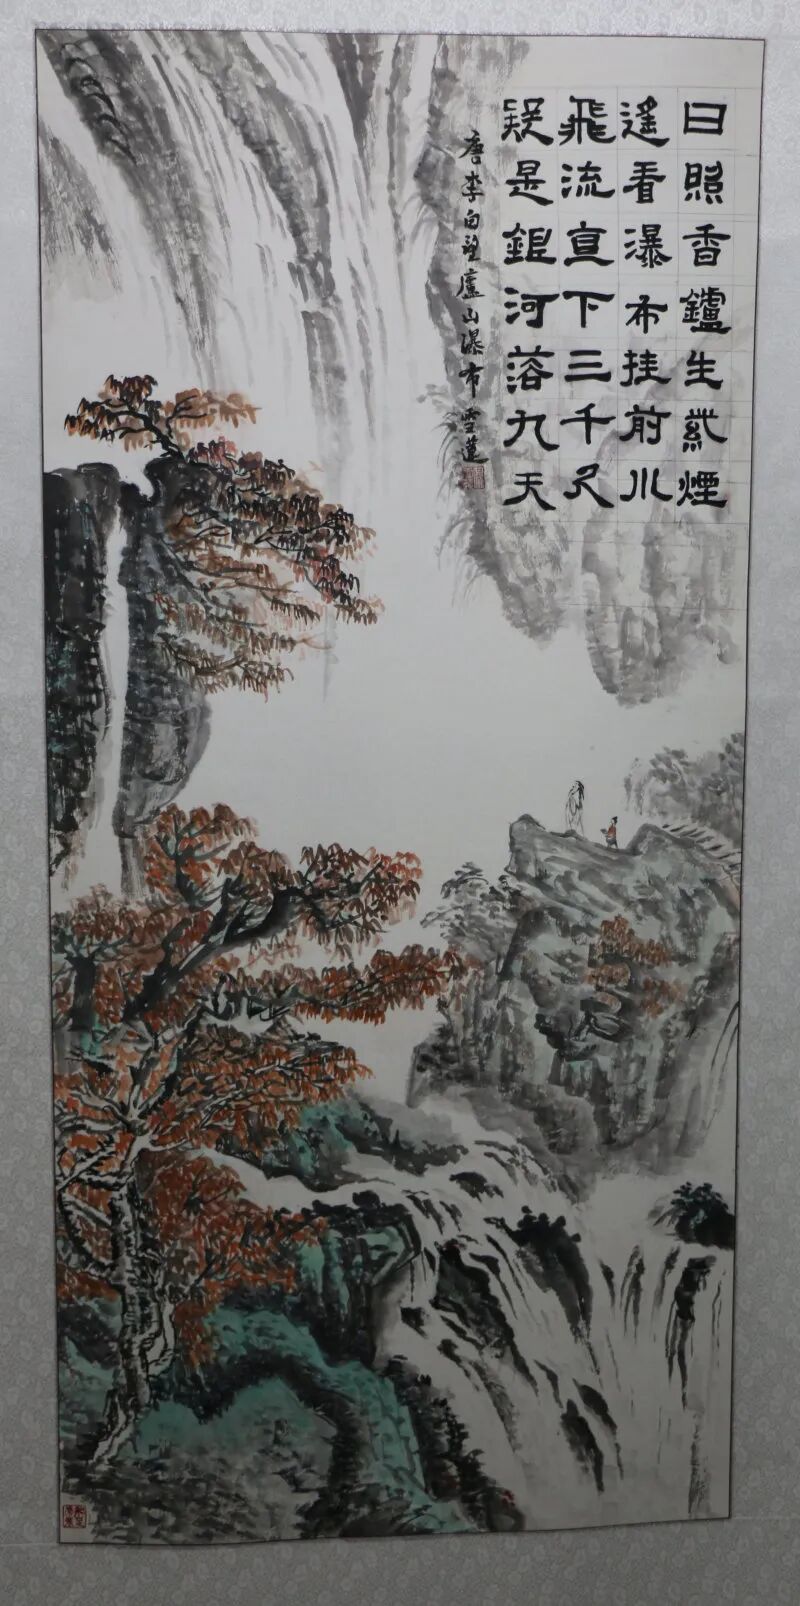 日照香鑪生紫煙
遙看瀑布挂前川
飛流直下三千尺
疑是銀河落九天
唐李白望廬山瀑布雪蓮